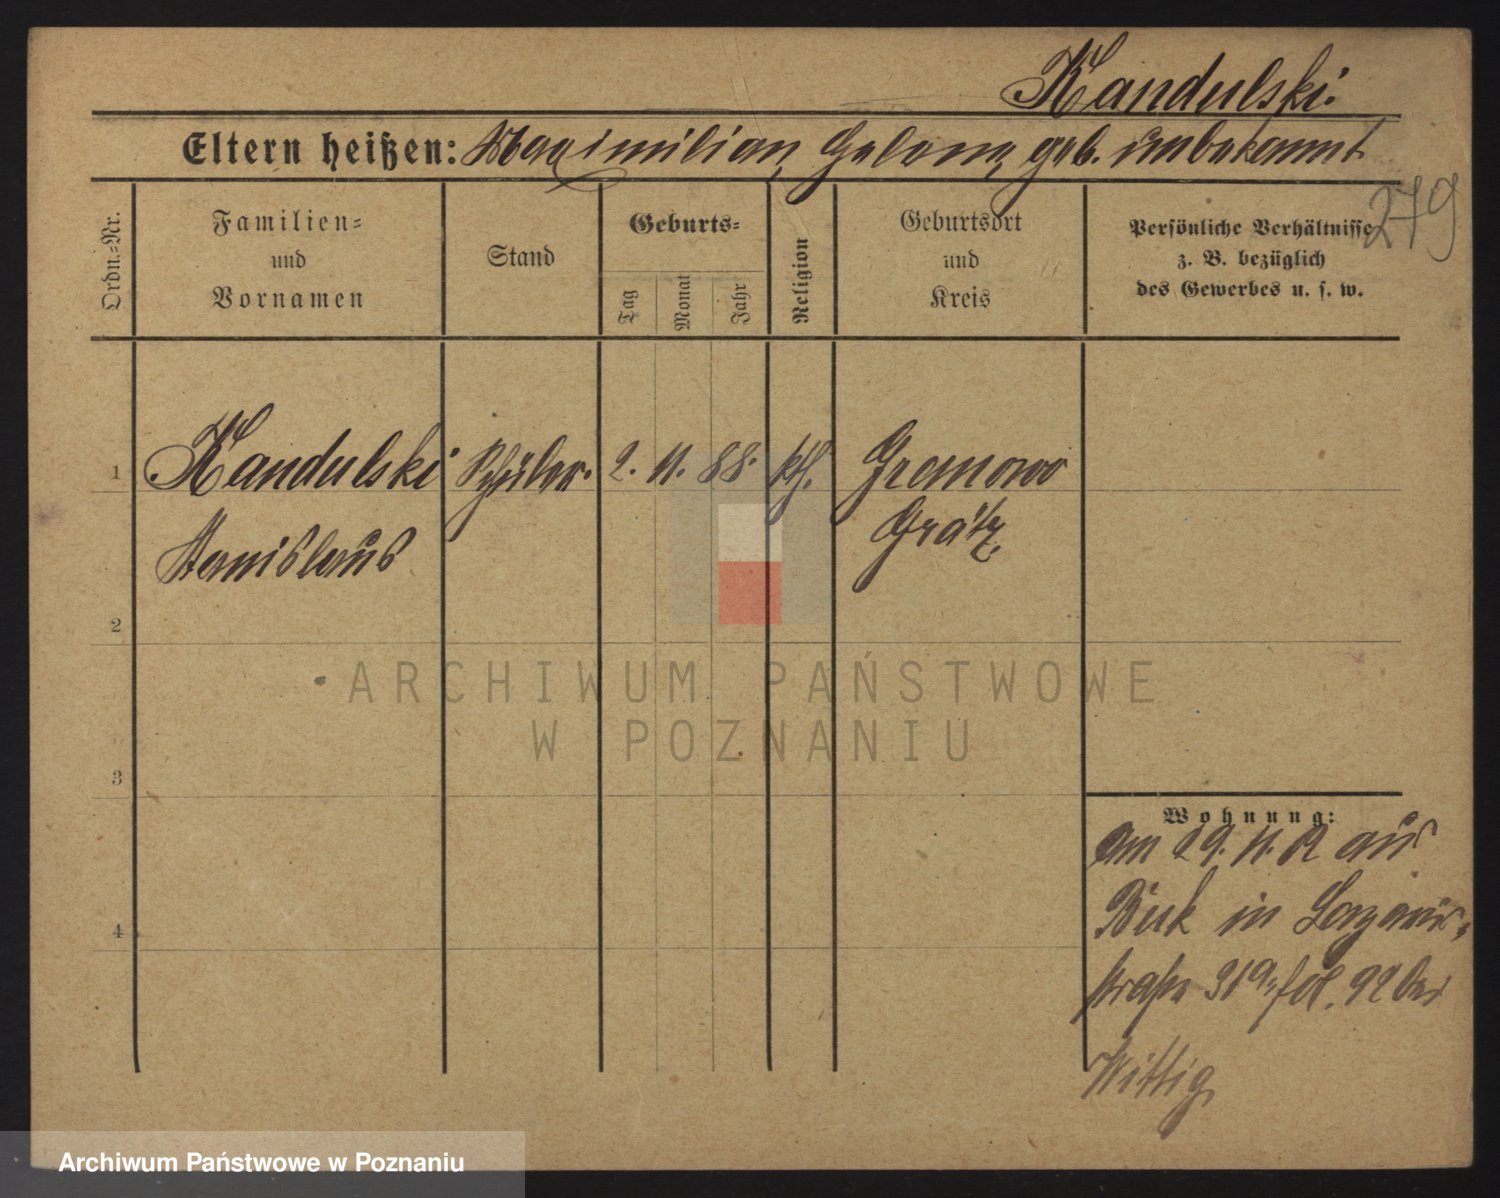 Kandulski.
Eltern heißen: Maximilian, Helena, geb. unbekannt
279
Ordn.-Nr.
Familien-
und
Vornamen
Stand
Geburts-
Tag
Monat
Jahr
Religion
Geburtsort
und
Kreis
Persönliche Verhältnisse
z. B. bezüglich
des Gewerbes u. s. w.
1 Kandulski Schüler. 2. 11. 88. kth.
Grätz
Stanislaus
2
3
4
Wohnung:
am 29. 11. 02 aus
Buk in
straße 31a, fol. 92 bei
Wittig
ARCHIWUM PAŃSTWOWE
W POZNANIU
Archiwum Państwowe w Poznaniu